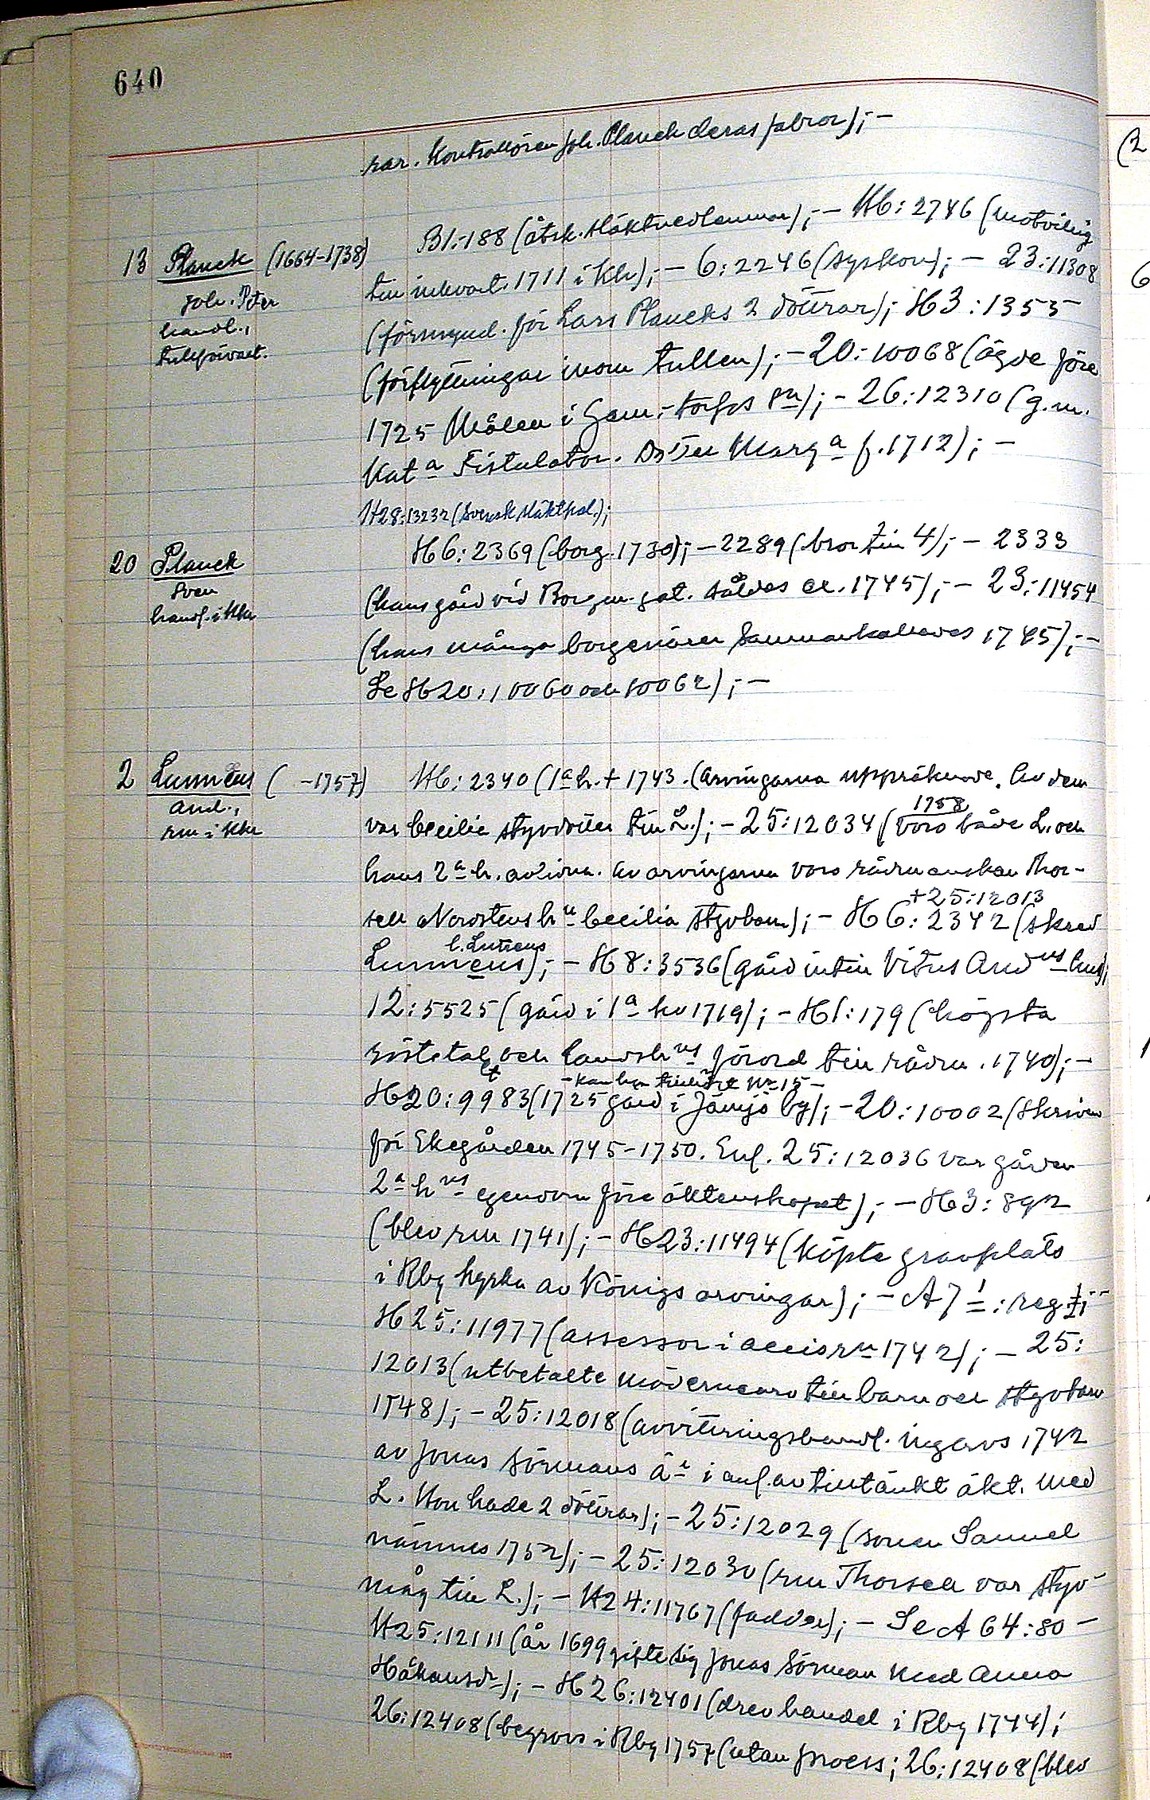 640
rar. Kontrollören Joh. Planck deras farbror);-
13 Planck (1664-1738) B1:188 (åtsk. släktmedlemmar);- H6:2746 (motvillig
Joh. Peter till inkvart. 1711 i Khr);- 6:2246 (syskon);- 23:11308
handl., (förmynd. för Lars Plancks 2 döttrar); H3:1355
tullförvalt. (förflyttningar inom tullen);- 20:10068 (ägde före
1725 Målen i Gam:torps sn);- 26:12310 (g.m.
Kata Fistulator. Dotter Marga f. 1712);-
H28:13232 (Svensk släktkal.);
20 Planck H6:2369 (borg. 1730);- 2289 (bror till 4);- 2333
Sven (hans gård vid Borgm. gat. såldes ca. 1745);- 23:11454
handl. i Khr (hans många borgenärer sammankallades 1745);-
Se H20:10060 och 10062);-
2 Lunnéus ( -1757) H6:2340 (1a h. + 1743. (Arvingarna uppräknade. Av dem
And., var Cecilia styvdotter till L.);- 25:12034 (1758 voro både L. och
rm i Khr hans 2a h. avlidna. Av arvingarna voro rådmanskan Thor-
sell Norstens hu Cecilia styvbarn);- H6:2342 (skrev
+25:12013
l. Lutteus
Lunneus);- H8:3536 (gård intill Vitus Andns hus);
12:5525 (gård i 1a kv 1719);- H1:179 (högsta
röstetal och landsh ns förord till rådm. 1740);-
- kan han tillhöre No 15 -
H20:9983 (1725 gård i Jämjö by);- 20:10002 (skriven
för Ekegården 1745-1750. Enl. 25:12036 var gården
2a h ns egendom före äktenskapet);- H3:892
(blev rm 1741);- H23:11494 (köpte gravplats
i Rby kyrka av Königs arvingar);- A71:reg.
H25:11977 (assessor i accisrn 1742);- 25:
12013 (utbetalte mödernearv till barn och styvbarn
1748);- 25:12018 (avvittringshandl. ingavs 1742
av Jonas Sörmans ä-a i anl. av tilltänkt äkt. med
L. Hon hade 2 döttrar);- 25:12029 (sonen Samuel
nämnes 1752);- 25:12030 (rm Thorsell var styv-
måg till L.);- H24:11767 (fadder);- Se A64:80-
H25:12111 (år 1699 gifte sig Jonas Sörman med Anna
Håkansdr);- H26:12401 (drev handel i Rby 1744);
26:12408 (begrovs i Rby 1757 (utan process; 26:12408 (blev